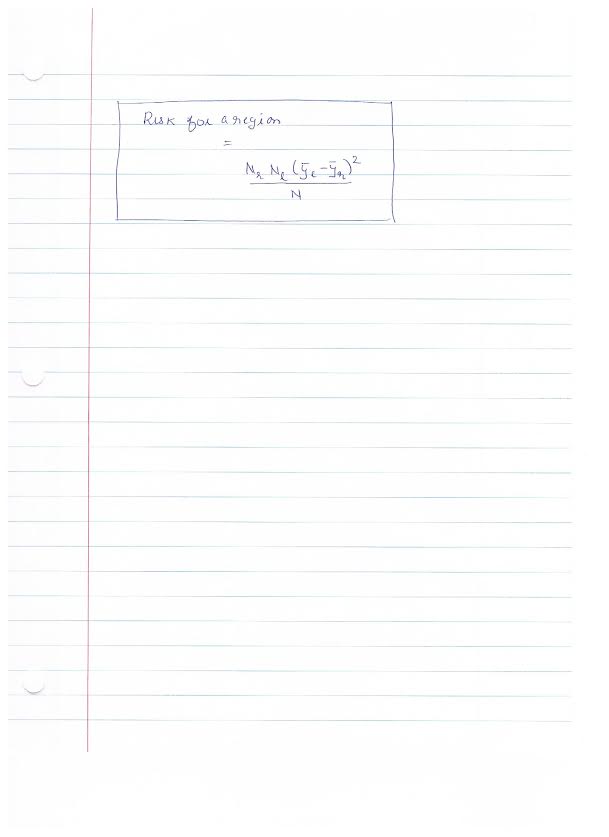 Risk for a region
=
N_r N_l (ȳ_l - ȳ_r)²
N